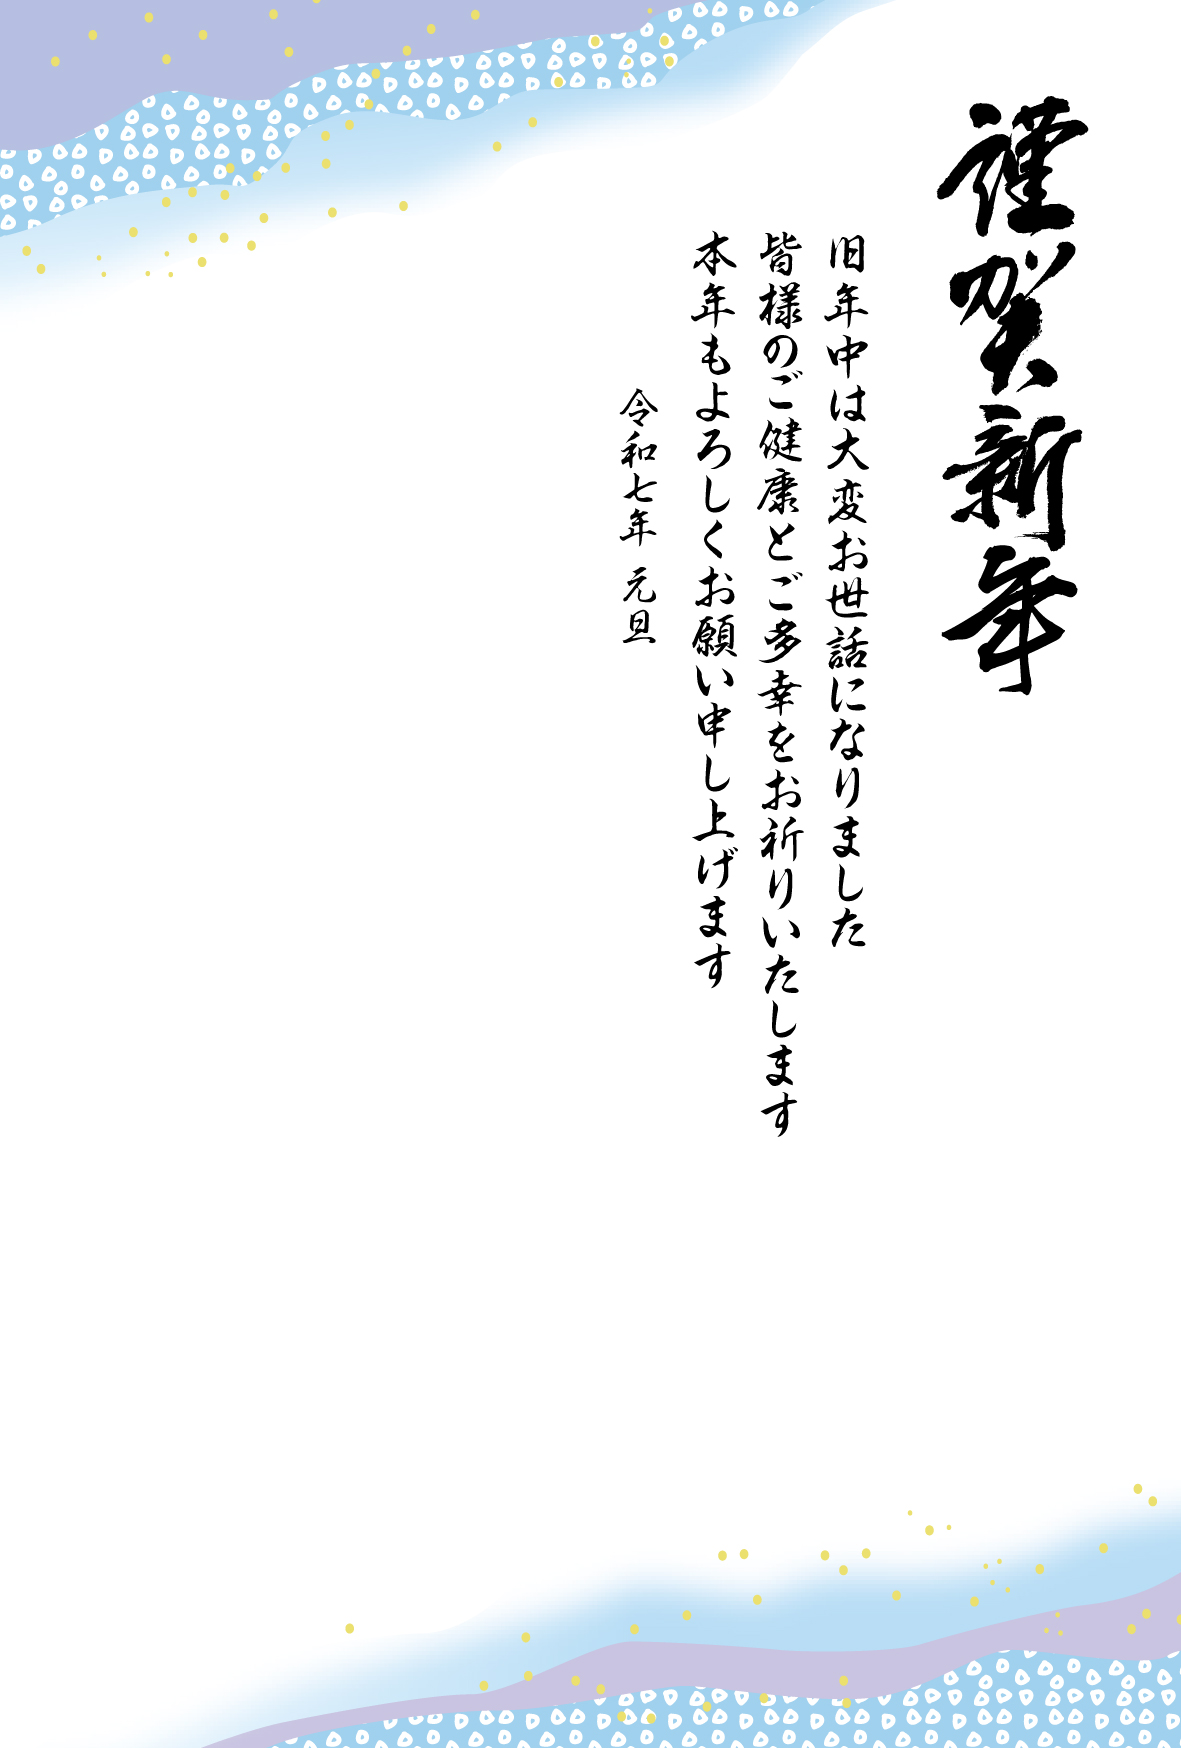 謹賀新年
旧年中は大変お世話になりました
皆様のご健康とご多幸をお祈りいたします
本年もよろしくお願い申し上げます
令和七年 元旦